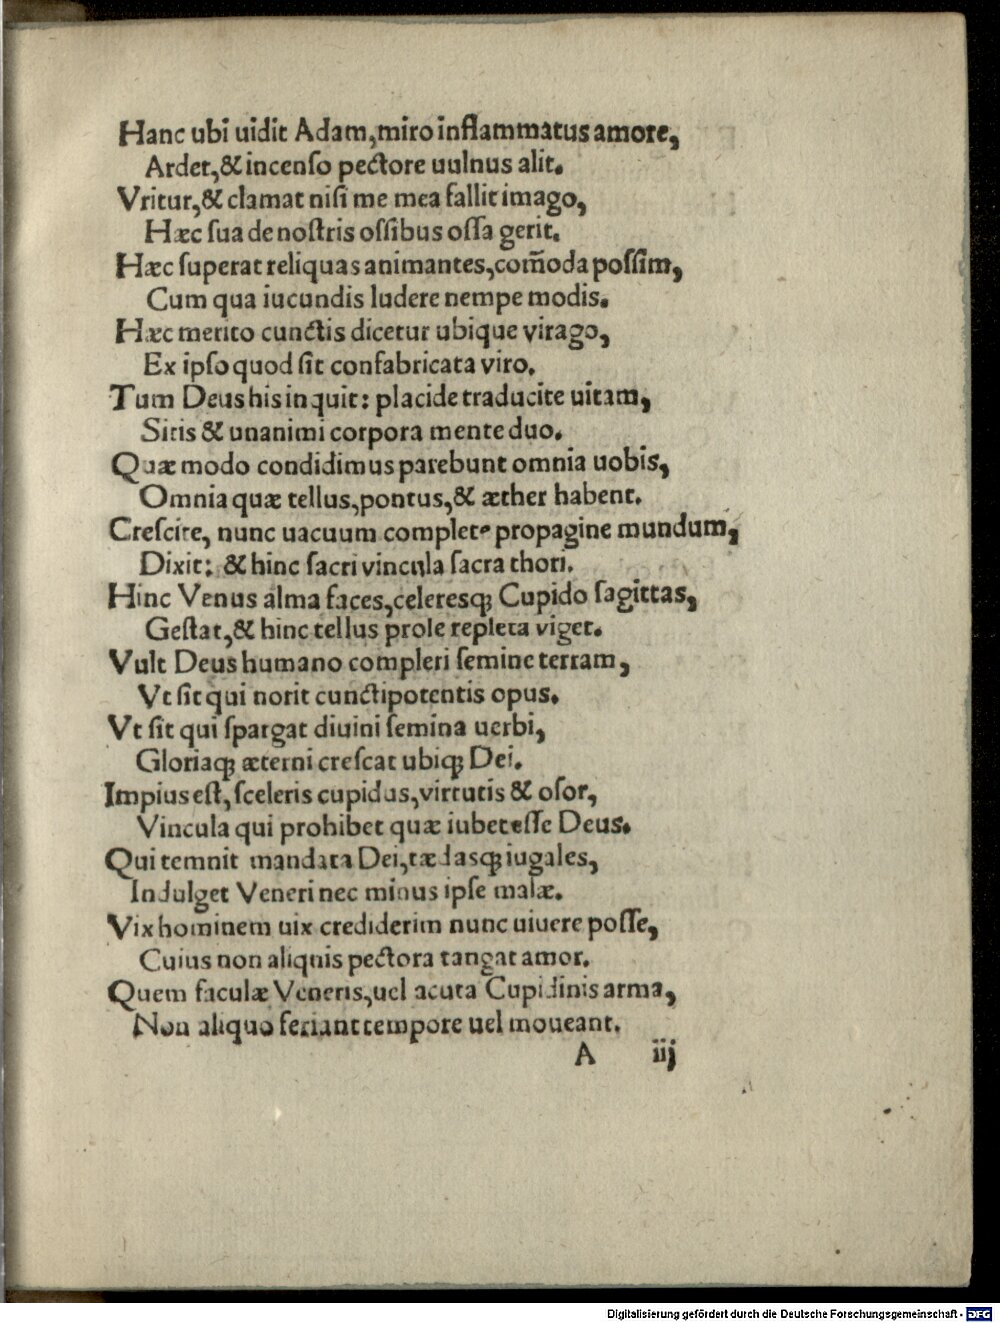 Hanc ubi uidit Adam,miro inflammatus amore,
Ardet,& incenſo pectore uulnus alit.
Vritur,& clamat niſi me mea fallit imago,
Hæc ſua de noſtris oſſibus oſſa gerit.
Hæc ſuperat reliquas animantes,com̃oda poſſim,
Cum qua iucundis ludere nempe modis.
Hæc merito cunctis dicetur ubique virago,
Ex ipſo quod ſit confabricata viro.
Tum Deus his inquit: placide traducite uitam,
Sitis & unanimi corpora mente duo.
Quæ modo condidimus parebunt omnia uobis,
Omnia quæ tellus,pontus,& æther habent.
Creſcite, nunc uacuum complete propagine mundum,
Dixit: & hinc ſacri vincula ſacra thori.
Hinc Venus alma faces,celeresq; Cupido ſagittas,
Geſtat,& hinc tellus prole repleta viget.
Vult Deus humano compleri ſemine terram,
Vt ſit qui norit cunctipotentis opus.
Vt ſit qui ſpargat diuini ſemina uerbi,
Gloriaq; æterni creſcat ubiq; Dei.
Impius eſt, ſceleris cupidus,virtutis & oſor,
Vincula qui prohibet quæ iubet eſſe Deus.
Qui temnit mandata Dei,tædasq; iugales,
Indulget Veneri nec minus ipſe malæ.
Vix hominem uix crediderim nunc uiuere poſſe,
Cuius non aliquis pectora tangat amor.
Quem faculæ Veneris,uel acuta Cupidinis arma,
Non aliquo feriant tempore uel moueant.
A iij
Digitalisierung gefördert durch die Deutsche Forschungsgemeinschaft - DFG